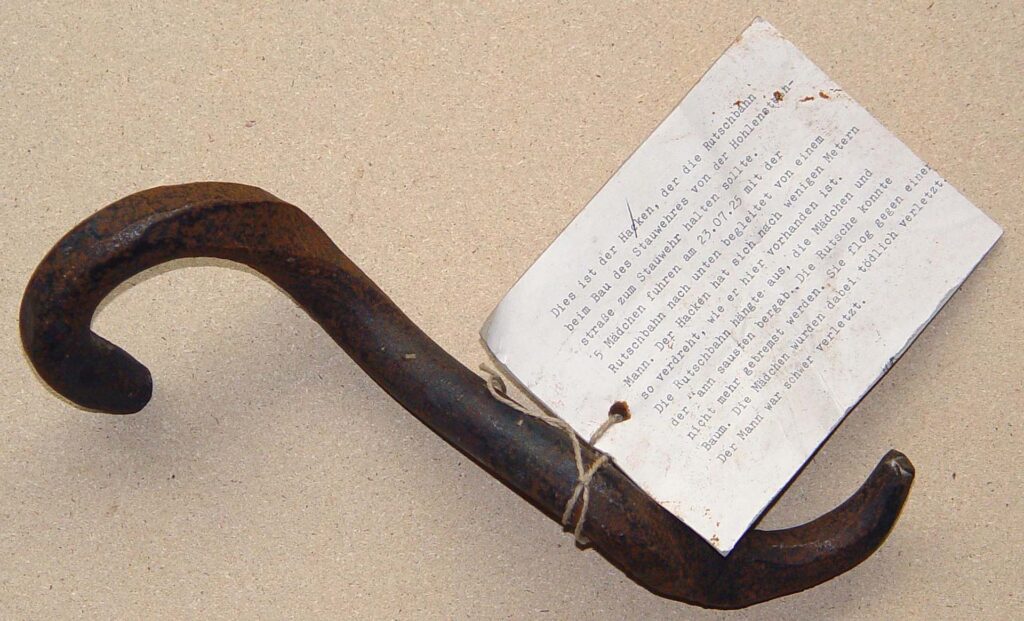 Dies ist der Hacken, der die Rutschbahn
beim Bau des Stauwehres von der Hohlenstein-
straße zum Stauwehr halten sollte.
5 Mädchen fuhren am 23.07.25 mit der
Rutschbahn nach unten begleitet von einem
Mann. Der Hacken hat sich nach wenigen Metern
so verdreht, wie er hier vorhanden ist.
Die Rutschbahn hängte aus, die Mädchen und
der "ann sausten bergab. Die Rutsche konnte
nicht mehr gebremst werden. Sie flog gegen einen
Baum. Die Mädchen wurden dabei tödlich verletzt.
Der Mann war schwer verletzt.